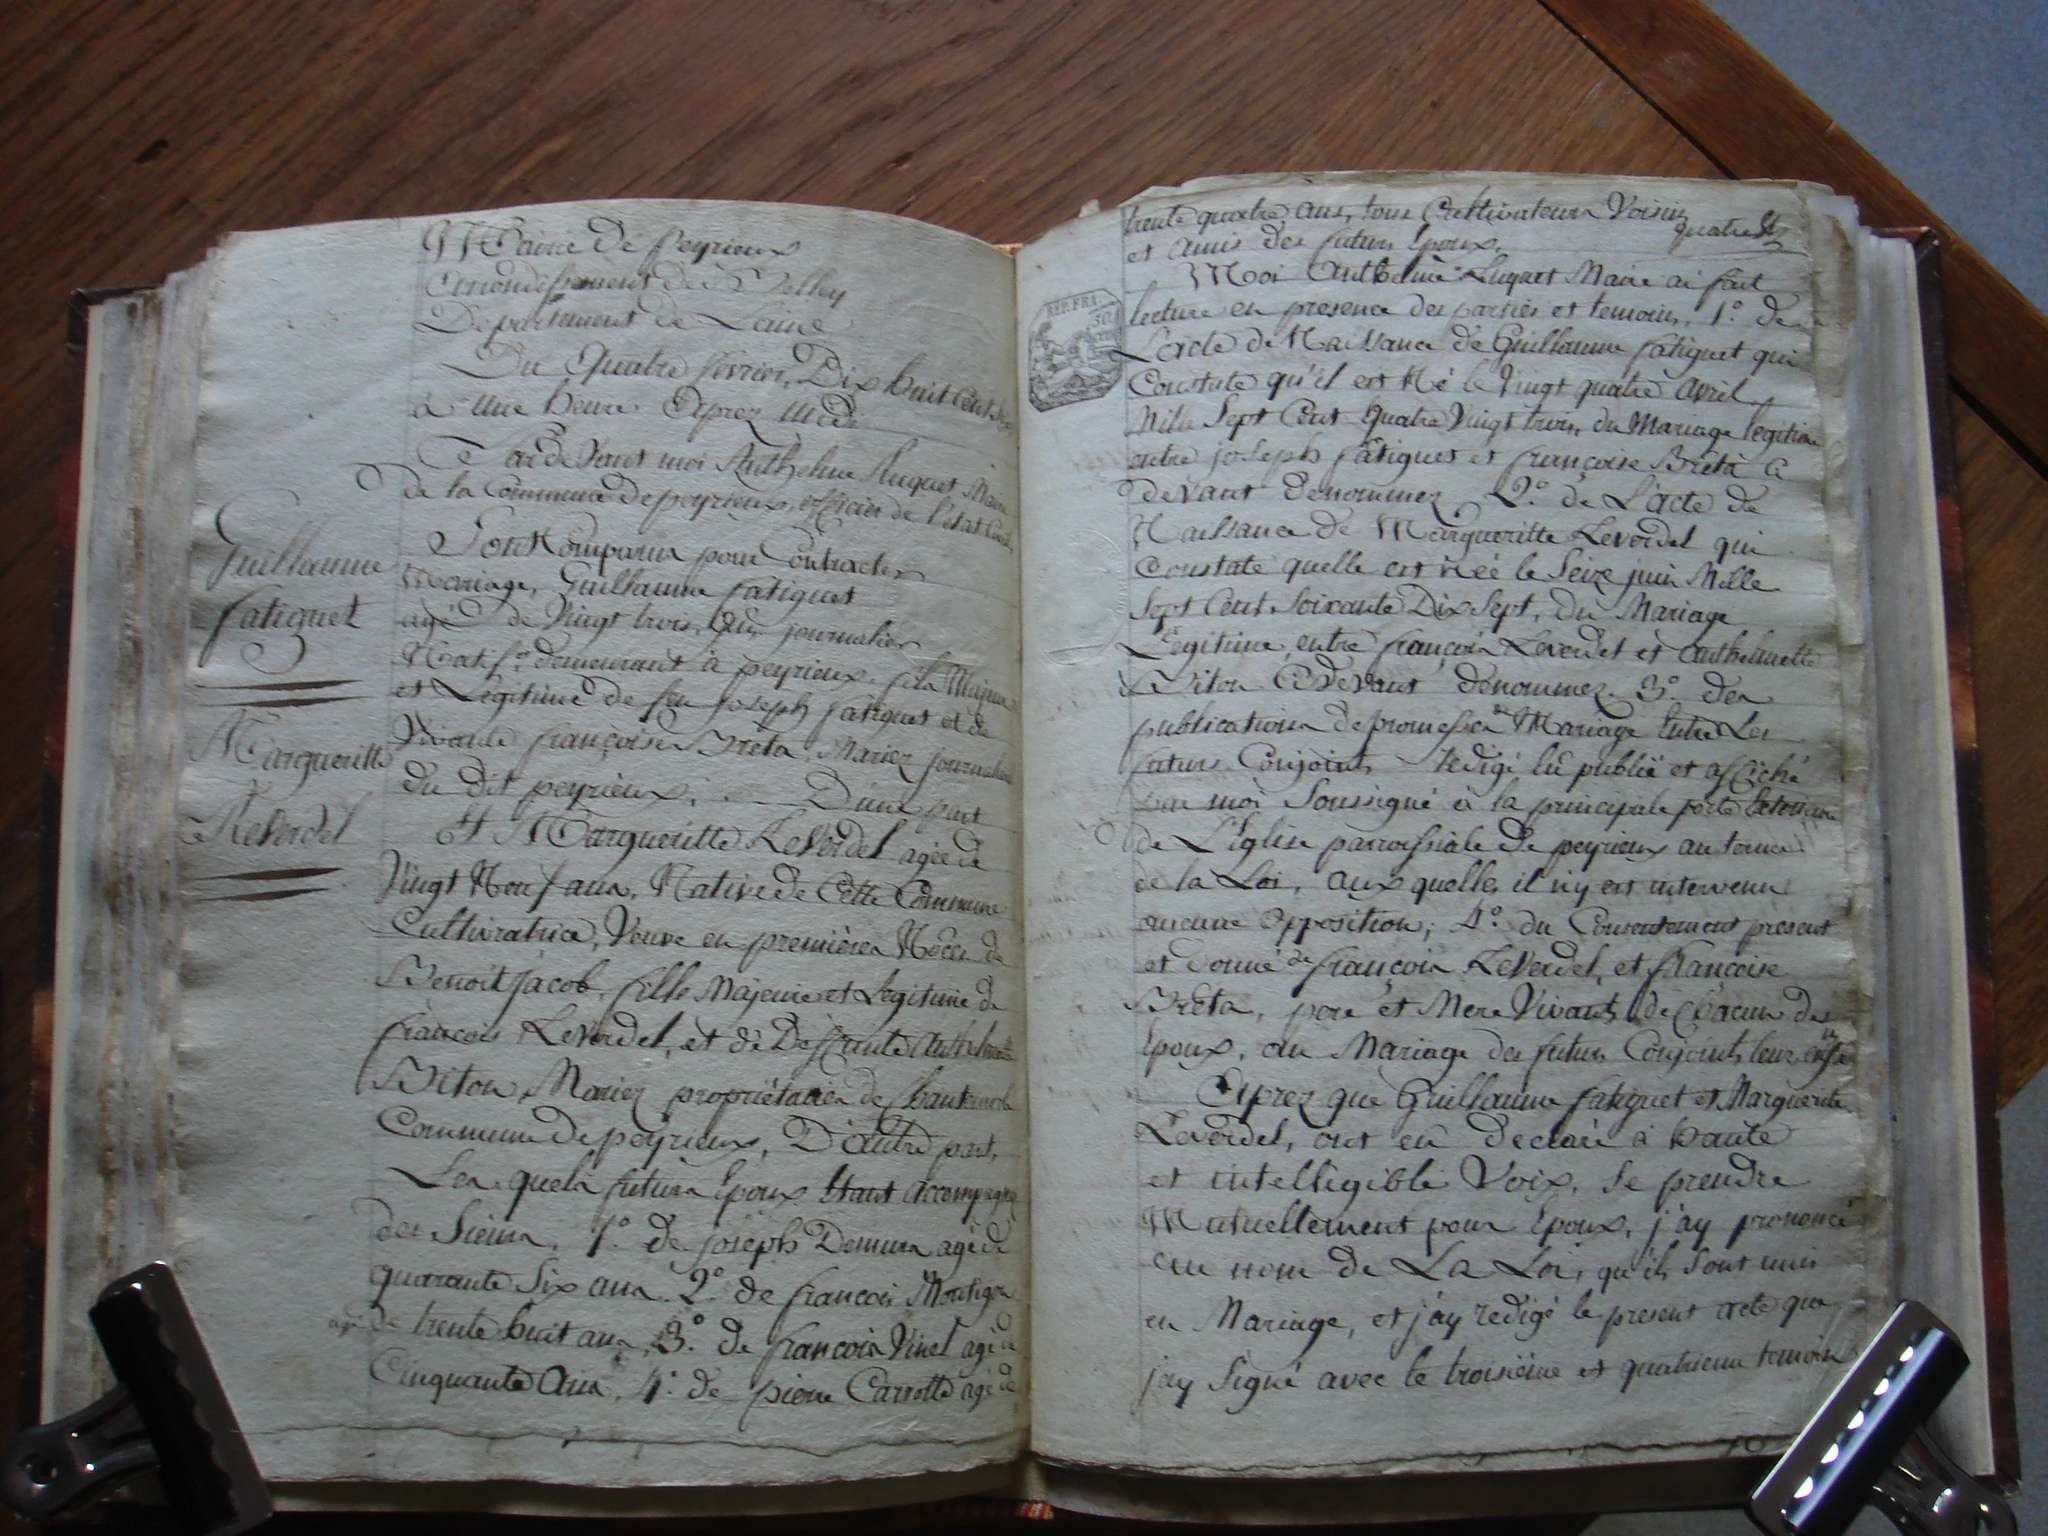 Mairie de peyrieux
arrondissement de Belley
Departement de Laine
Du quatre fevrier, Dix huit Cent
à une heure aprez midi
Par devant moi Anthelme Huguet Maire
de la Commune de peyrieux, officier de l'etat Civil
Guillaume
fatiguet
Margueritte
Reverdel
Sont Comparus pour Contracter
Mariage, Guillaume fatiguet
agé de Vingt trois ans journalier
Natif et demeurant à peyrieux, fils Majeur
et Légitime de feu Joseph fatiguet et de
Vivante françoise Breta, Mariez journaliers
du dit peyrieux, D'une part
Et Margueritte Reverdel agée de
Vingt Neuf ans, Native de Cette Commune
Cultivatrice, Veuve en premières Noces de
Benoit Jacob, fille Majeure et Legitime de
françois Reverdel, et de Deffunte Anthelmette
Biton Mariez propriétaires de
Commune de peyrieux, D'autre part,
Les quels futurs Epoux Etant accompagnez
des Siens, 1º. de joseph Demura agé de
quarante Six ans. 2º. de françois Montigon
agé de trente huit ans, 3º. de françois Vinel agé de
Cinquante ans, 4º. de pierre Carrotte agé de
REP. FRA.
trente quatre ans, tous Cultivateurs Voisins
et amis des futurs Epoux.
Moi Anthelme Huguet Maire ai fait
lecture en presence des parties et temoins, 1º. de
L'acte de Naissance de Guillaume fatiguet qui
Constate qu'il est Né le Vingt quatre avril
Mille Sept Cent Quatre Vingt trois, du Mariage legitime
entre joseph fatiguet et françoise Breta Ci
devant denommez 2º. de L'acte de
Naissance de Margueritte Reverdel qui
Constate quelle est née le Seize juin Mille
Sept Cent Soixante Dix Sept, du Mariage
Legitime entre françois Reverdel et anthelmette
Biton Ci Devant denommez. 3º. des
publications de promesses de Mariage Entre Les
futurs Conjoints Redigé lû publié et affiché
par moi Soussigné à la principale porte
de L'Eglise parroissiale de peyrieux au terme
de la Loi, aux quelles il n'y est intervenu
aucune Opposition; 4º. du Consentement present
et donné de françois Reverdel, et françoise
Breta, pere et Mere Vivants de Chacun des
Epoux, au Mariage des futurs Conjoints leur
Aprez que Guillaume fatiguet et Marguerite
Reverdel, ont eû declaré à haute
et intelligible Voix, Se prendre
Mutuellement pour Epoux, j'ay prononcé
au nom de La Loi, qu'ils Sont unis
en Mariage, et j'ay redigé le present acte que
jay Signé avec le troisième et quatrieme temoin